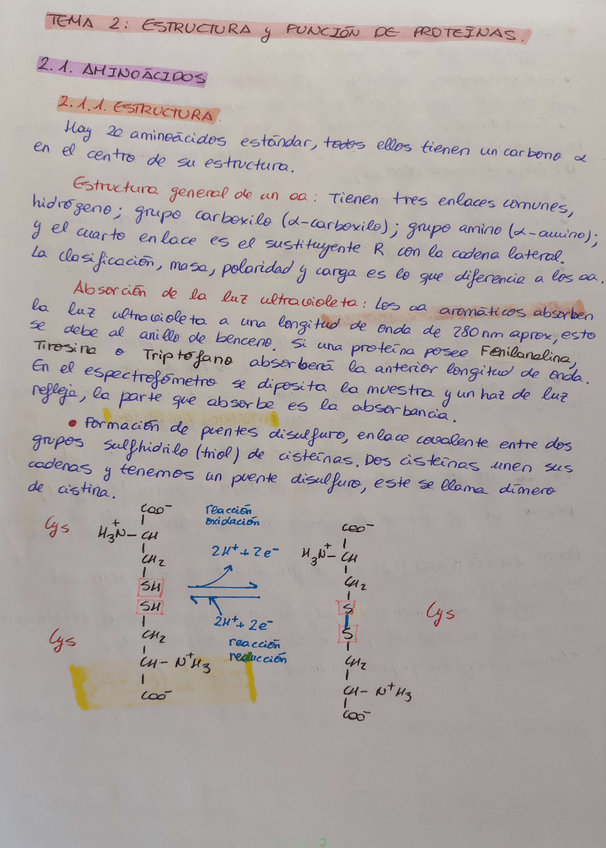 TEMA 2: ESTRUCTURA y FUNCIÓN DE PROTEÍNAS.
2.1. AMINOÁCIDOS
2.1.1. ESTRUCTURA
Hay 20 aminoácidos estándar, todos ellos tienen un carbono α
en el centro de su estructura.
Estructura general de un aa: Tienen tres enlaces comunes,
hidrógeno; grupo carboxilo (α-carboxilo); grupo amino (α-amino);
y el cuarto enlace es el sustituyente R con la cadena lateral.
La clasificación, masa, polaridad y carga es lo que diferencia a los aa.
Absorción de la luz ultravioleta: Los aa aromáticos absorben
la luz ultravioleta a una longitud de onda de 280 nm aprox, esto
se debe al anillo de benceno. Si una proteína posee Fenilanalina,
Tirosina o Triptófano absorberá la anterior longitud de onda.
En el espectrofómetro se diposita la muestra y un haz de luz
refleja, la parte que absorbe es la absorbancia.
• Formación de puentes disulfuro, enlace covalente entre dos
grupos sulfhidrilo (triol) de cisteínas. Dos cisteínas unen sus
cadenas y tenemos un puente disulfuro, este se llama dímero
de cistina.
Cys
COO⁻
H₃N⁺–CH
CH₂
SH
SH
CH₂
CH–N⁺H₃
COO⁻
Cys
reacción
oxidación
2H⁺+2e⁻
2H⁺+2e⁻
reacción
reducción
COO⁻
H₃N⁺–CH
CH₂
S
S
CH₂
CH–N⁺H₃
COO⁻
Cys